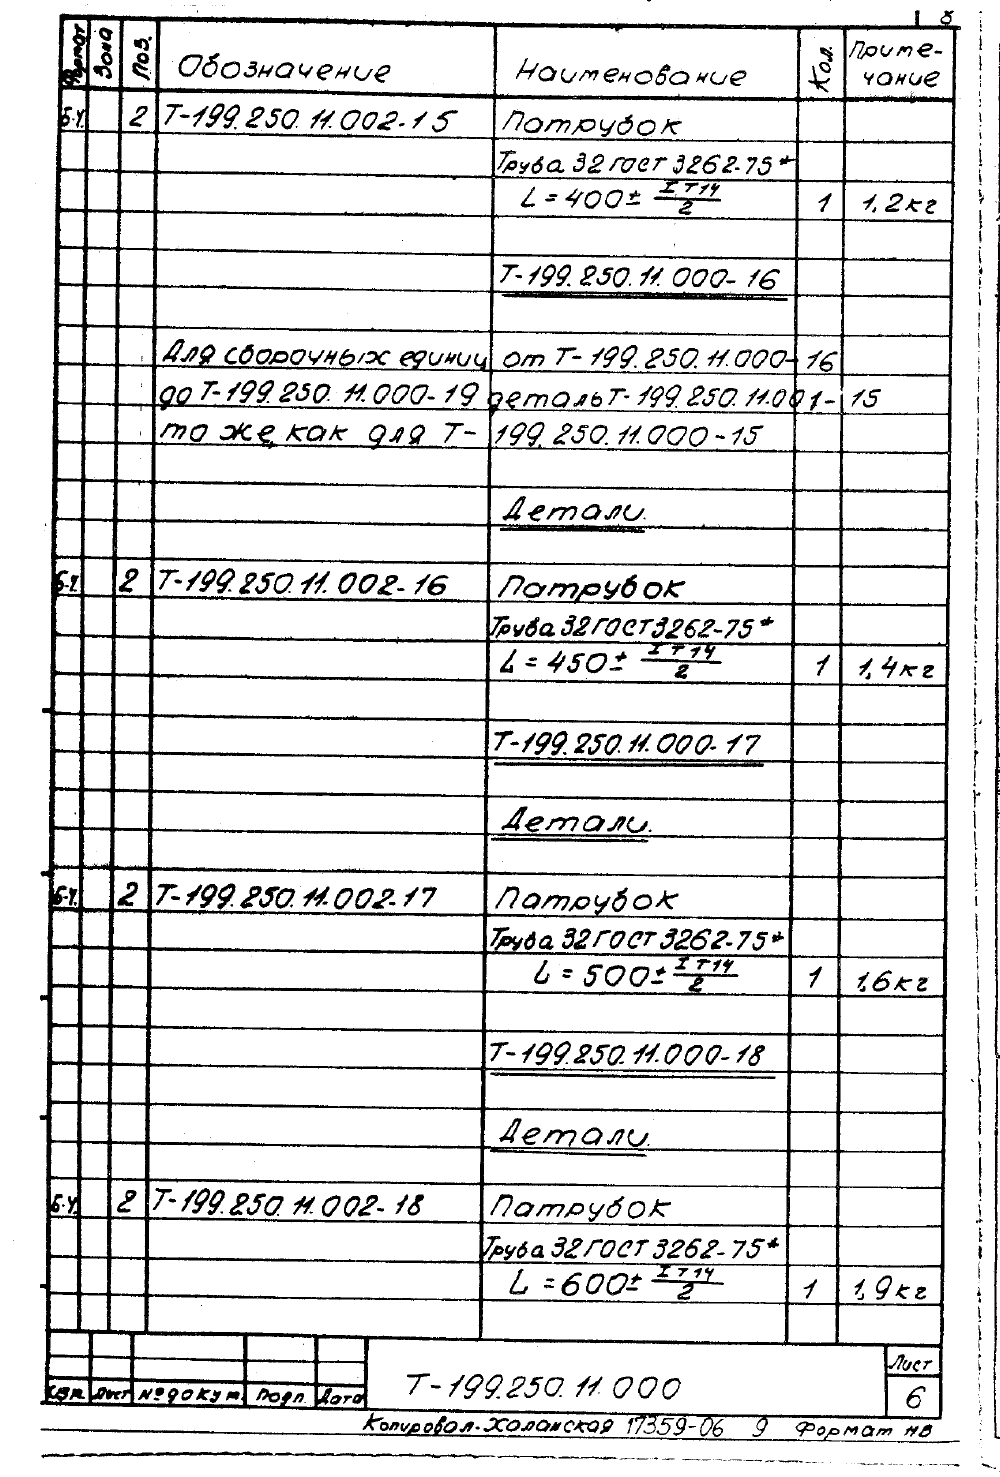 8
Формат Зона Поз. Обозначение Наименование Кол. Приме-
чание
Б.Ч. 2 Т-199.250.11.002-15 Патрубок
Труба 32 ГОСТ 3262-75*
L=400± IT14/2 1 1,2кг
Т-199.250.11.000-16
Для сборочных единиц от Т-199.250.11.000-16
до Т-199.250.11.000-19 деталь Т-199.250.11.001-15
то же, как для Т-199.250.11.000-15
Детали.
Б.Ч. 2 Т-199.250.11.002-16 Патрубок
Труба 32 ГОСТ 3262-75*
L=450± IT14/2 1 1,4кг
Т-199.250.11.000-17
Детали.
Б.Ч. 2 Т-199.250.11.002-17 Патрубок
Труба 32 ГОСТ 3262-75*
L=500± IT14/2 1 1,6кг
Т-199.250.11.000-18
Детали.
Б.Ч. 2 Т-199.250.11.002-18 Патрубок
Труба 32 ГОСТ 3262-75*
L=600± IT14/2 1 1,9кг
Лист
Изм. Лист № докум. Подп. Дата Т-199.250.11.000 6
Копировал-Халанская 17359-06 9 Формат